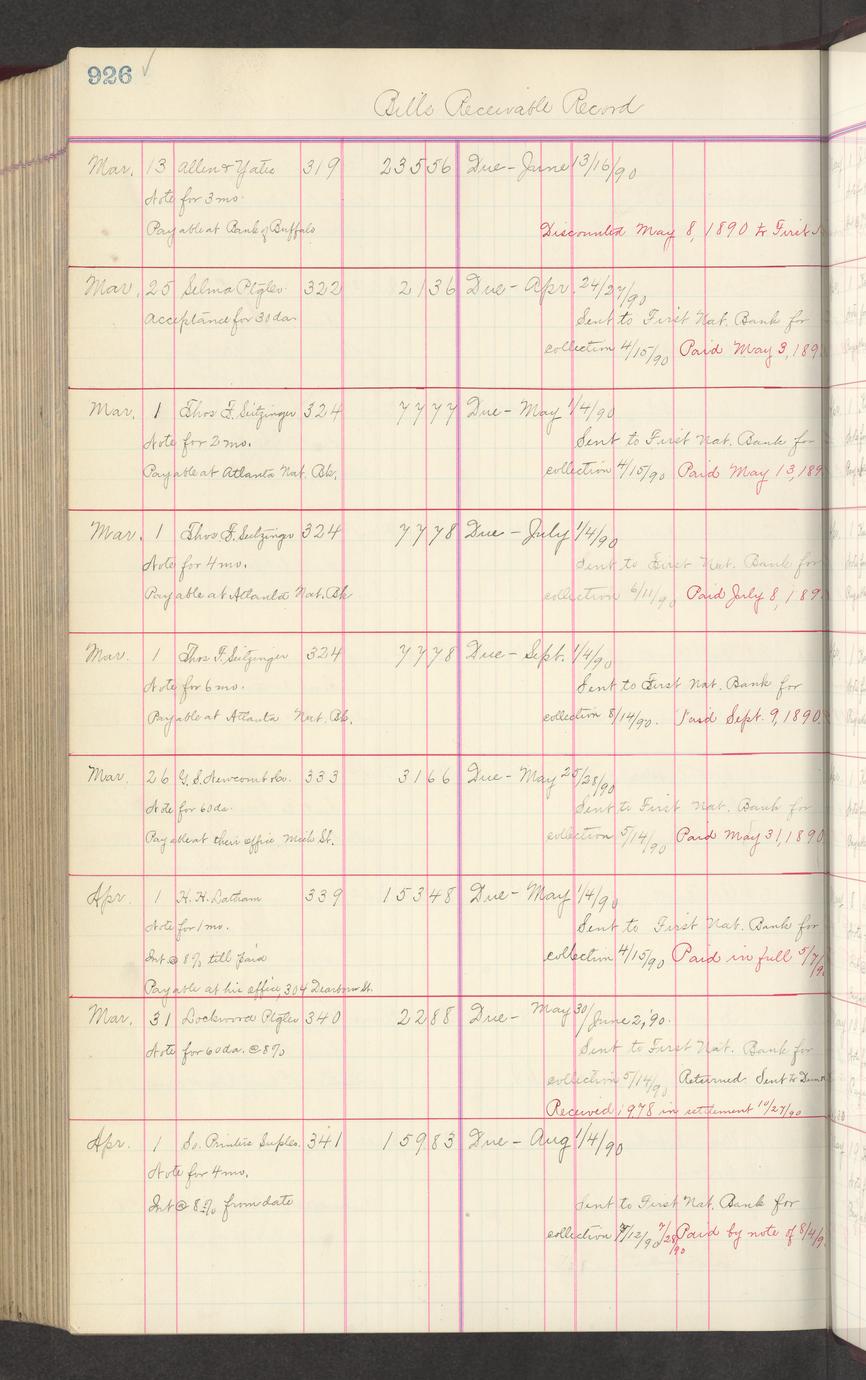 926
Bills Receivable Record
Mar. 13 Allen & Yates 319 235 56 Due - June 13/16/90
Note for 3 mo.
Payable at Bank of Buffalo Discounted May 8, 1890 to First
Mar. 25 Selma Ptg Co 322 21 36 Due - Apr. 24/27/90
Acceptance for 30 da Sent to First Nat. Bank for
collection 4/15/90 Paid May 3, 189
Mar. 1 Thos F. Seitzinger 324 77 77 Due - May 1/4/90
Note for 2 mo. Sent to First Nat. Bank for
Payable at Atlanta Nat. Bk. collection 4/15/90 Paid May 13, 189
Mar. 1 Thos F. Seitzinger 324 77 78 Due - July 1/4/90
Note for 4 mo. Sent to First Nat. Bank for
Payable at Atlanta Nat. Bk collection 6/11/90 Paid July 8, 189
Mar. 1 Thos F. Seitzinger 324 77 78 Due - Sept. 1/4/90
Note for 6 mo. Sent to First Nat. Bank for
Payable at Atlanta Nat. Bk. collection 8/14/90. Paid Sept. 9, 1890.
Mar. 26 G. S. Newcomb & Co. 333 31 66 Due - May 25/28/90
Note for 60 da. Sent to First Nat. Bank for
Payable at their office Mich St. collection 5/14/90 Paid May 31, 1890
Apr. 1 H. H. Latham 339 153 48 Due - May 1/4/90
Note for 1 mo. Sent to First Nat. Bank for
Int @ 8% till paid collection 4/15/90 Paid in full 5/7/9
Payable at his office, 304 Dearborn St.
Mar. 31 Lockwood Ptg Co 340 22 88 Due - May 30/June 2, '90.
Note for 60 da. @ 8% Sent to First Nat. Bank for
collection 5/14/90 Returned. Sent to
Received 19 78 in settlement 10/27/90
Apr. 1 So. Printers Suplrs. 341 159 83 Due - Aug 1/4/90
Note for 4 mo.
Int @ 8% from date Sent to First Nat. Bank for
collection 7/12/90 7/28/90 Paid by note of 8/4/9